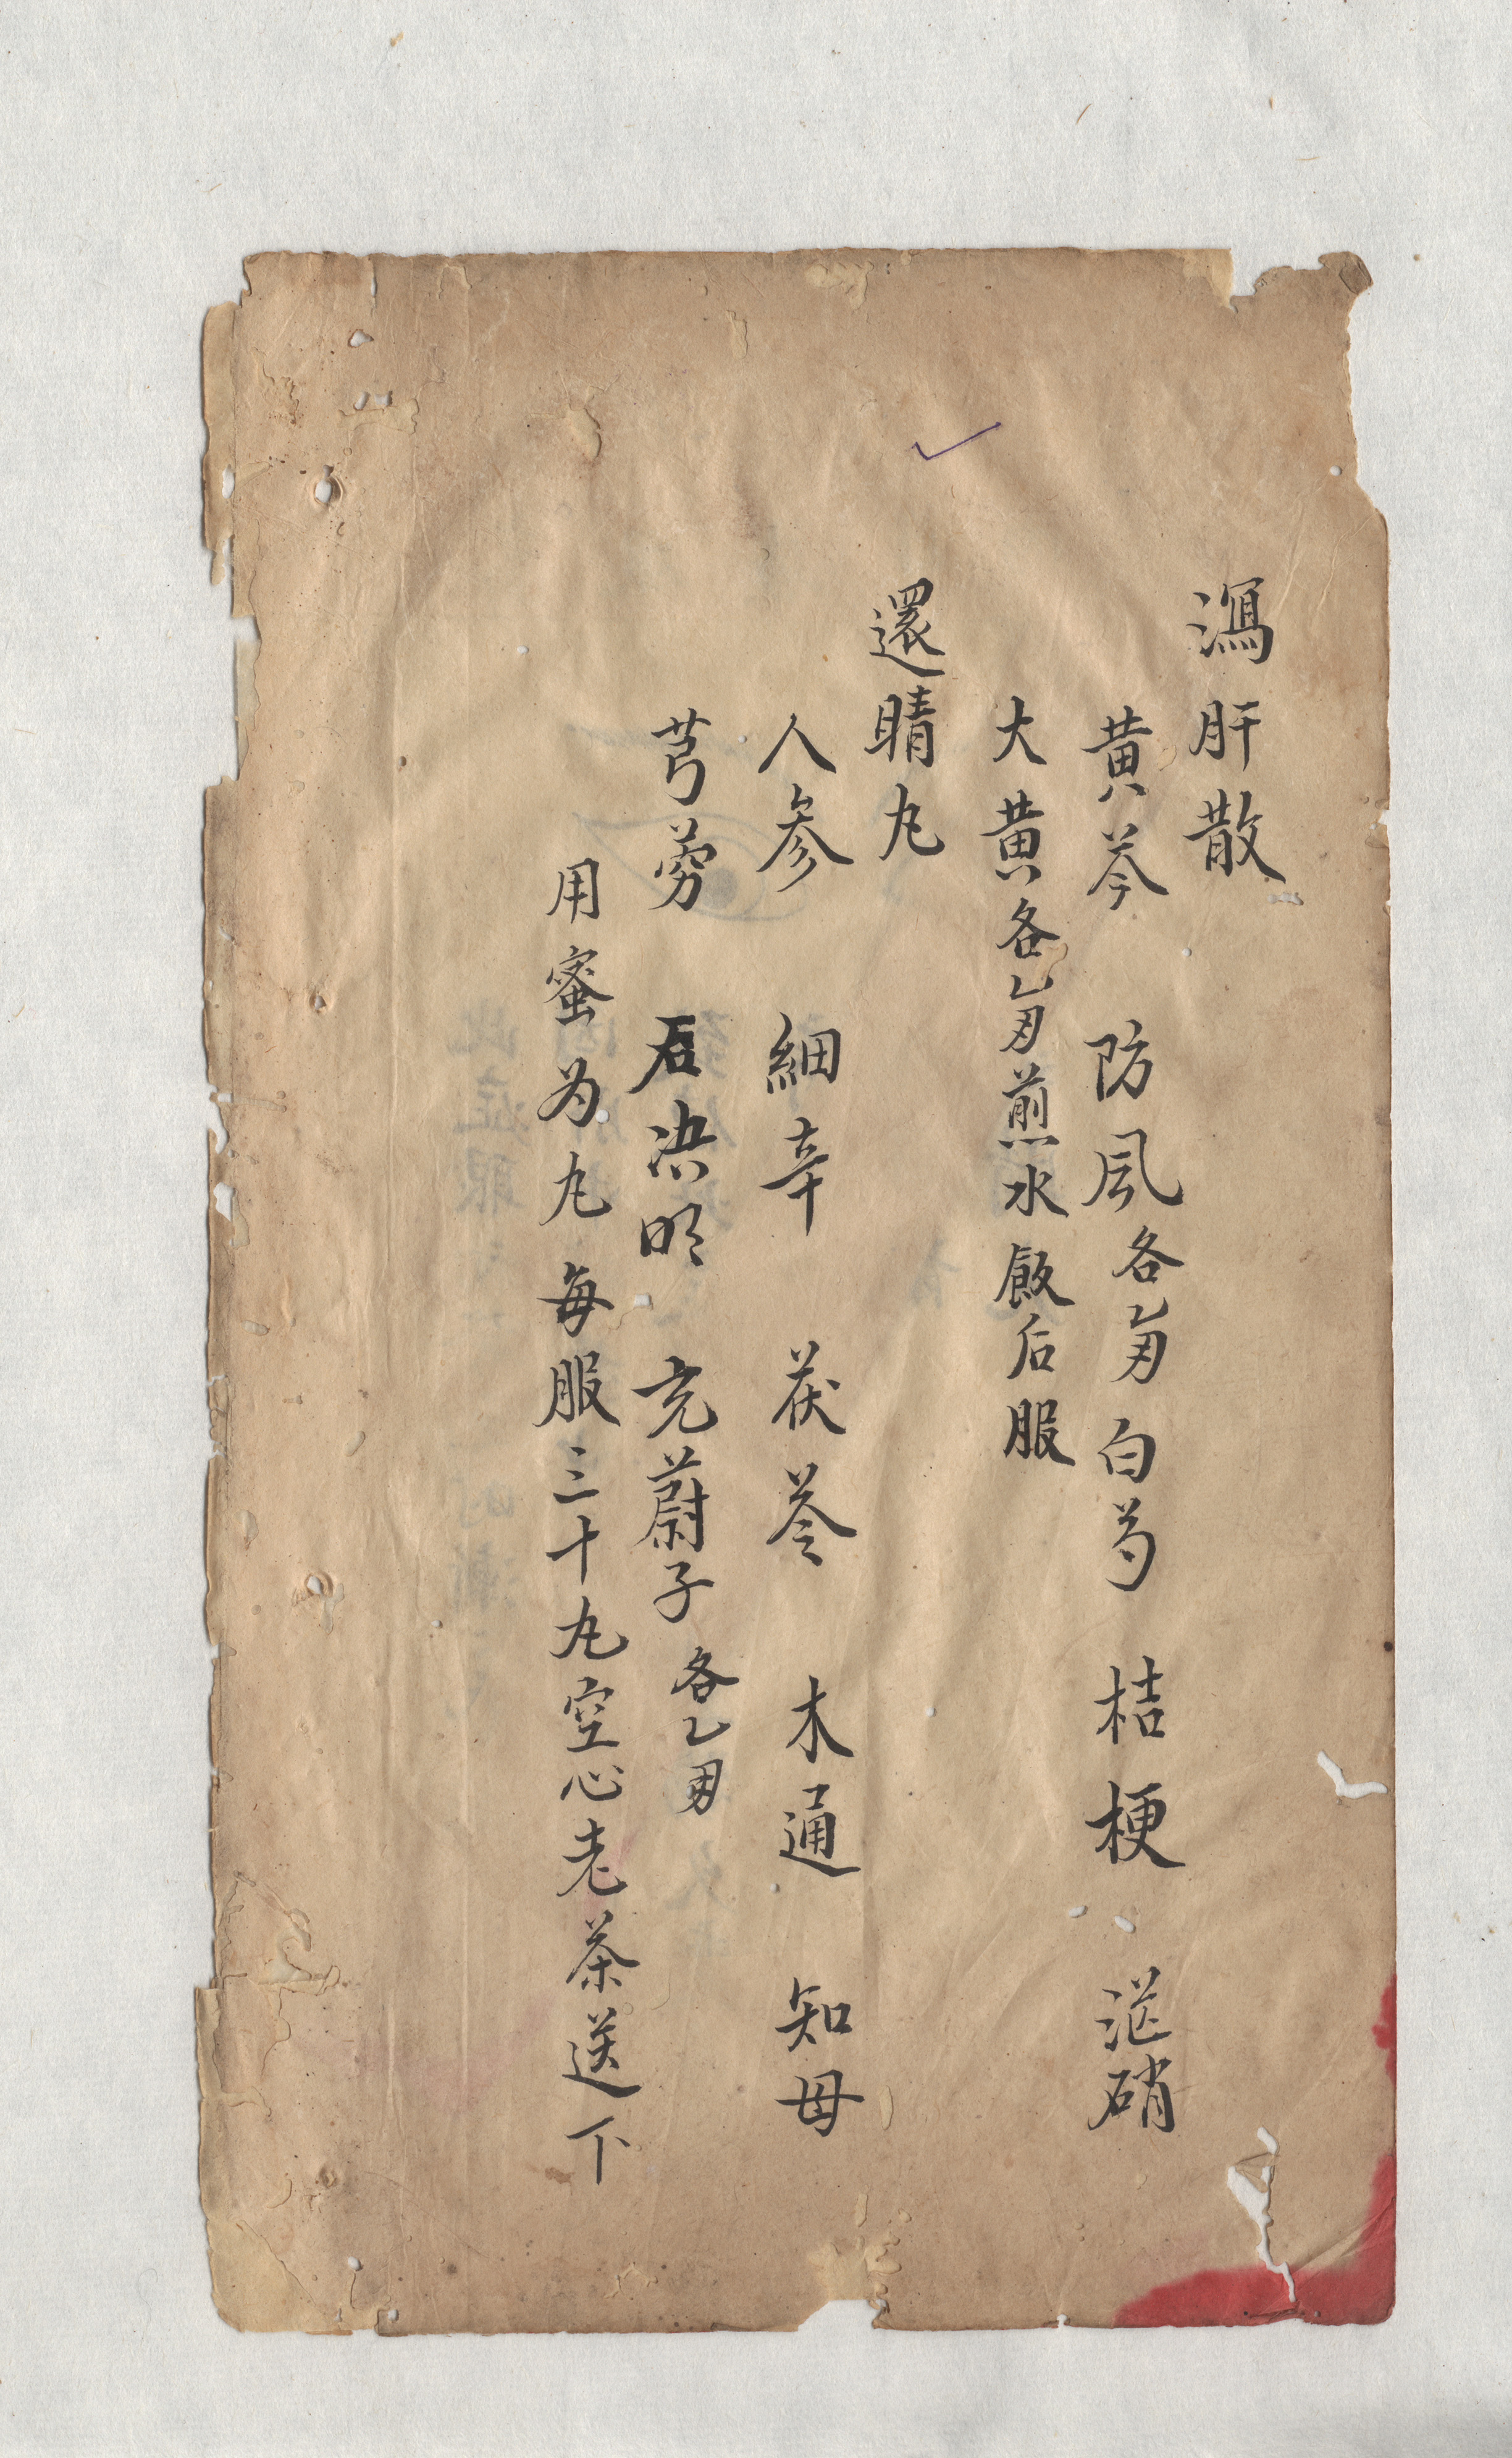 瀉肝散
黄芩 防風各乙男白芍 桔梗 茫硝
大黄各乙男煎水飯后服
還睛丸
人参 細辛 茯苓 木通 知母
芎藭 石决明 充蔚子各乙男
用蜜为丸每服三十丸空心老茶送下